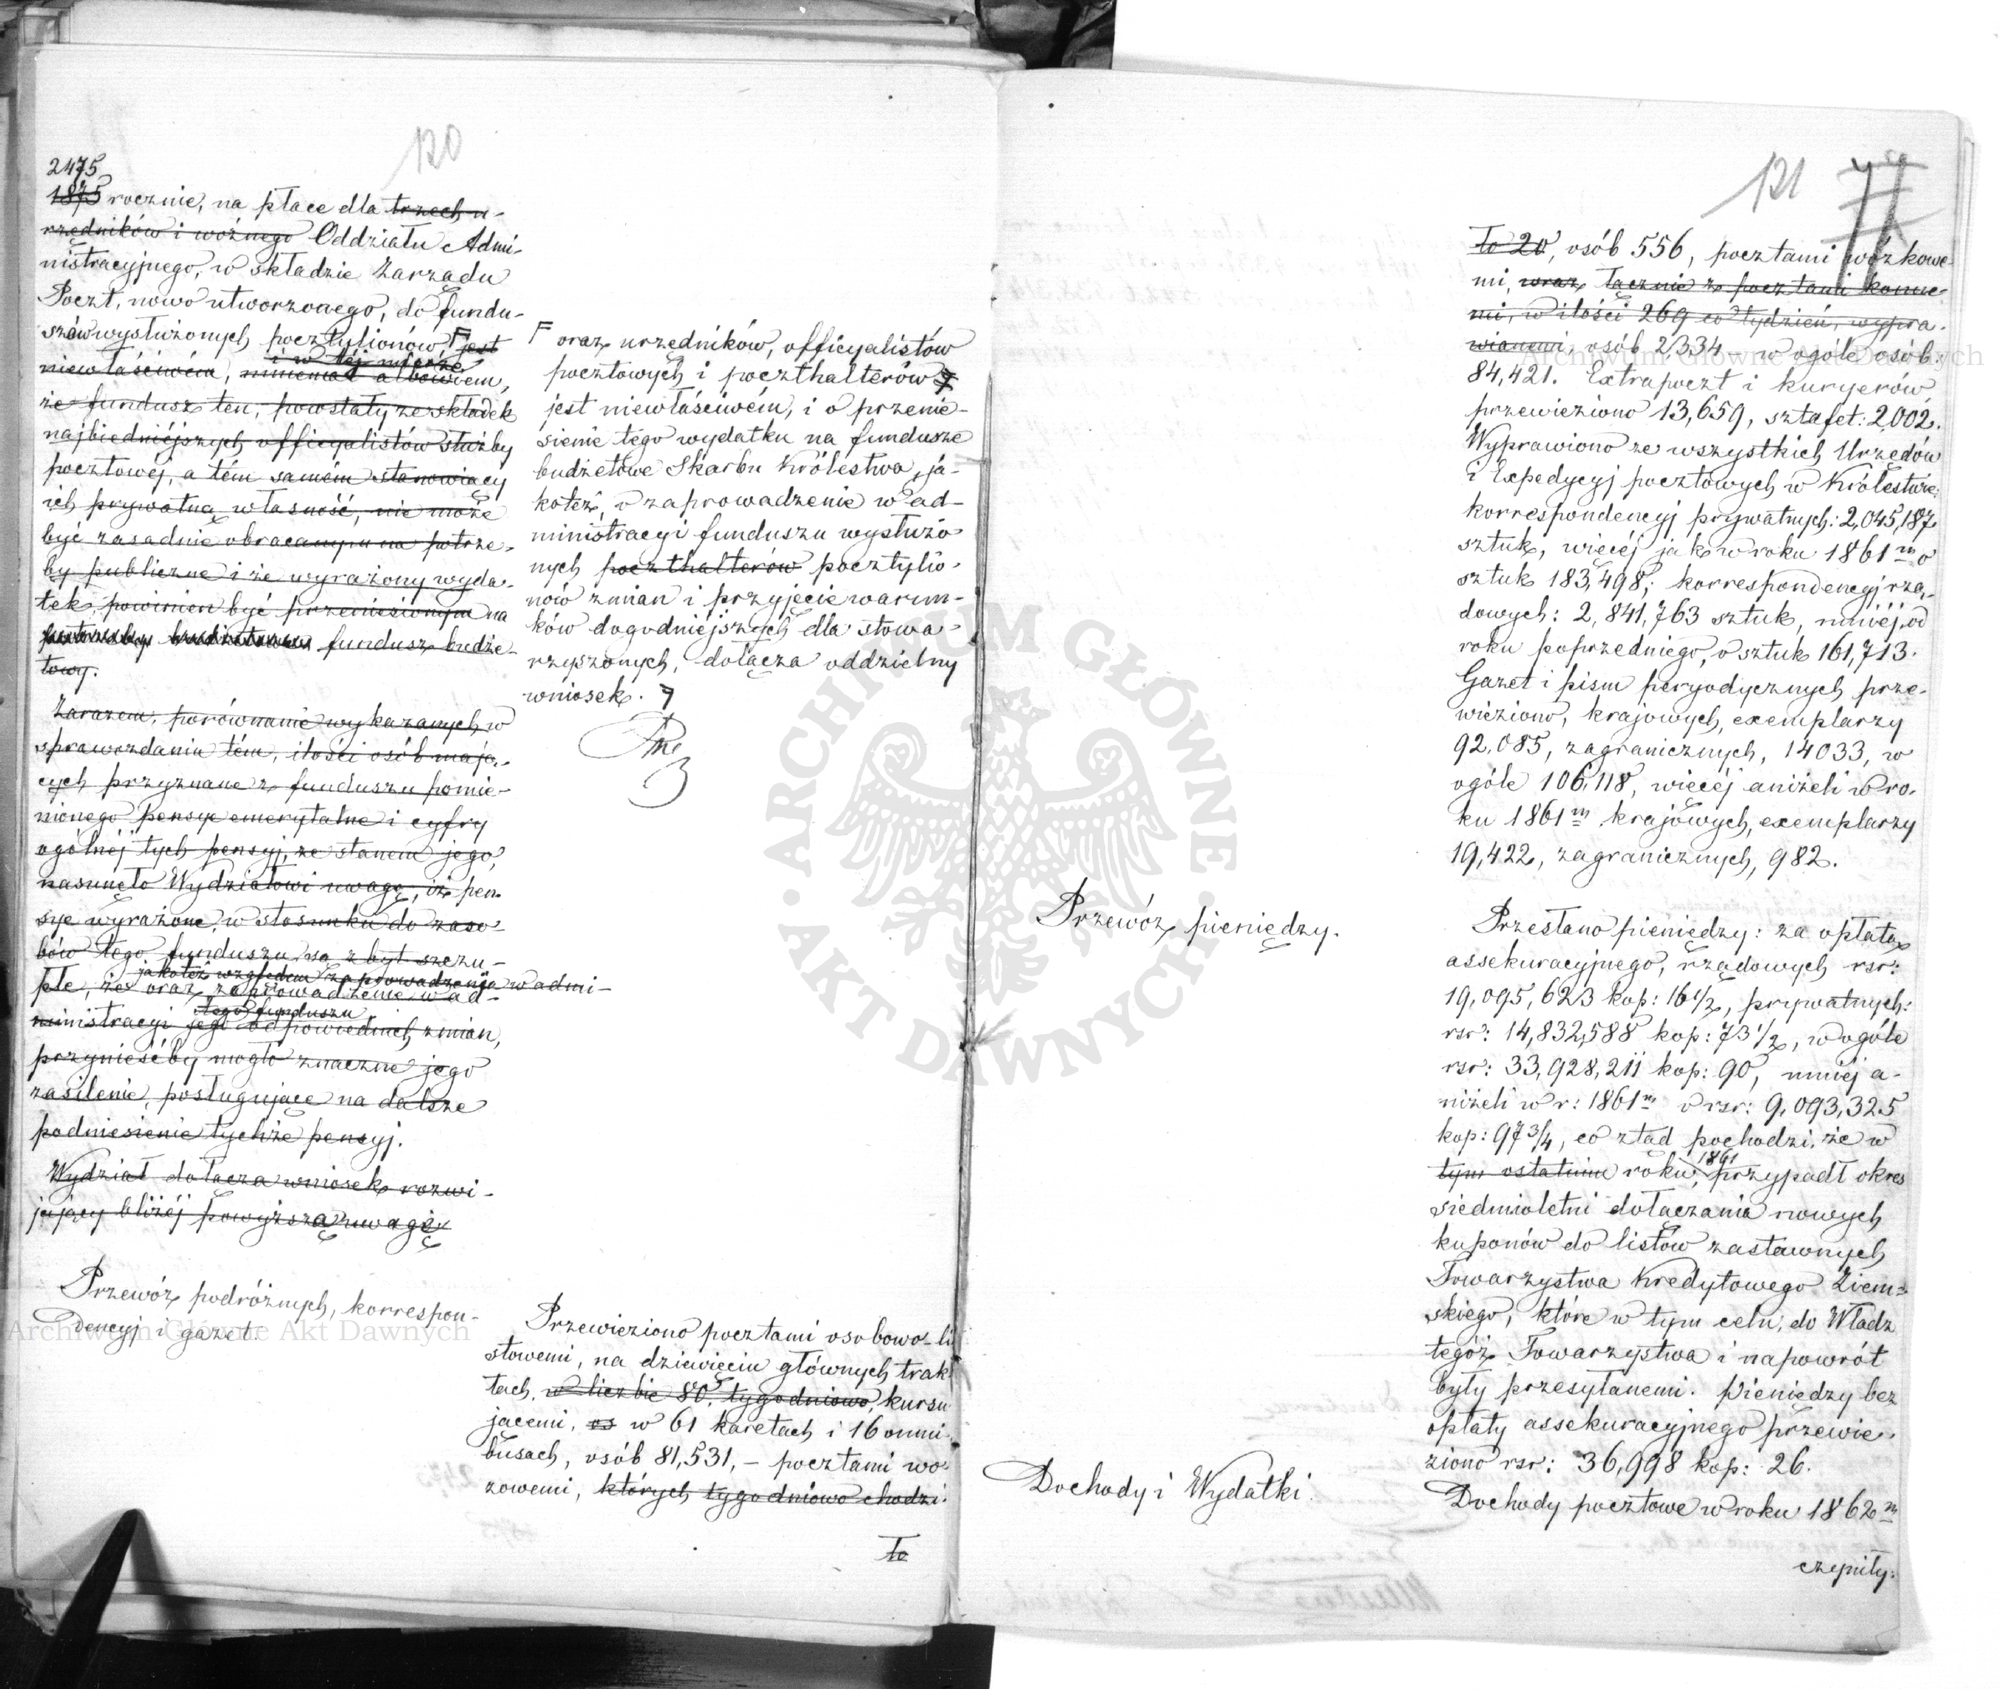 120
2475
1875 rocznie, na płace dla trzech u-
rzędników i woźnego Oddziału Admi-
nistracyjnego, w składzie Zarządu
Poczt, nowo utworzonego, do fundu-
szów wysłużonych pocztylionów F jest
i w tej mierze
niewłaściwém, nimeniał albowiem,
że fundusz ten, powstały ze składek
najbiedniéjszych officyalistów służby
pocztowéj, a tém samém stanowiący
ich prywatną własność, nie może
być zasadnie obracanym na potrze-
by publiczne i że wyrażony wyda-
tek, powinien być przeniesionym na
potrzeby budżetowe fundusz budże-
towy.
Zarazem, porównanie wykazanych w
sprawozdaniu tém, ilości osób mają-
cych przyznane z funduszu pomie-
nionego pensye emerytalne i cyfry
ogólnéj tych pensyj, ze stanem jego,
nasunęło Wydziałowi uwagę, iż pen-
sye wyrażone, w stosunku do zaso-
bów tego funduszu, są zbyt szczu-
jakoteż względem zaprowadzenia w admi-
płe, że oraz zaprowadzenie w ad-
tego funduszu
ministracyi jego odpowiednich zmian,
przynieśćby mogło znaczne jego
zasilenie, posługujące na dalsze
podniesienie tychże pensyj.
Wydział dołącza wniosek rozwi-
jający bliżéj powyższą uwagę
F oraz urzędników, officyalistów
pocztowych i poczthalterów
jest niewłaściwém, i o przenie-
sienie tego wydatku na fundusze
budżetowe Skarbu Królestwa, ja-
koteż, o zaprowadzenie w ad-
ministracyi funduszu wysłużo-
nych poczthalterów pocztylio-
nów zmian i przyjęcie warun-
ków dogodniejszych dla stowa-
rzyszonych, dołącza oddzielny
wniosek.
Przewóz podróżnych, korrespon-
dencyj i gazet.
Przewieziono pocztami osobowo-li
stowemi, na dziewięciu głównych trak
tach, w liczbie 80, tygodniowo, kursu
jącemi, os w 61 karetach i 16 omni-
busach, osób 81,531, – pocztami wo-
zowemi, których tygodniowo chodzi
to
121 77
to 20, osób 556, pocztami wózkowe-
mi, wraz łącznie z pocztami konne-
mi, w ilości 269 co tydzień, wypra-
wianemi, osób 2,334 – w ogóle osób:
84,421. Extrapoczt i kuryerów
przewieziono 13,659, sztafet: 2,002.
Wyprawiono ze wszystkich Urzędów
i Expedycyj pocztowych w Królestwie:
korrespondencyj prywatnych: 2,045,187
sztuk, więcéj jak w roku 1861m o
sztuk 183,498; korrespondencyj rzą-
dowych: 2,841,763 sztuk, mniéj od
roku poprzedniego, o sztuk 161,713.
Gazet i pism peryodycznych prze-
wieziono, krajowych, exemplarzy
92,085, zagranicznych, 14033, w
ogóle 106,118, więcéj aniżeli w ro-
ku 1861m krajowych, exemplarzy
19,422, zagranicznych, 982.
Przewóz pieniędzy.
Przesłano pieniędzy: za opłatą
assekuracyjnego, rządowych rsr:
19,095,623 kop: 16½, prywatnych:
rsr: 14,832,588 kop: 73½, w ogóle
rsr: 33,928,211 kop: 90, mniej a-
niżeli w r: 1861m o rsr: 9,093,325
kop: 97¾, co ztąd pochodzi, że w
1861
tym ostatnim roku, przypadł okres
siedmioletni dołączania nowych
kuponów do listów zastawnych
Towarzystwa Kredytowego Ziem-
skiego, które w tym celu, do Władz
tegóż Towarzystwa i napowrót
były przesyłanemi. Pieniędzy bez
opłaty assekuracyjnego przewie-
ziono rsr: 36,998 kop: 26.
Dochody i Wydatki.
Dochody pocztowe w roku 1862m
czyniły:
ARCHIWUM GŁÓWNE · AKT DAWNYCH ·
Archiwum Główne Akt Dawnych
Archiwum Główne Akt Dawnych